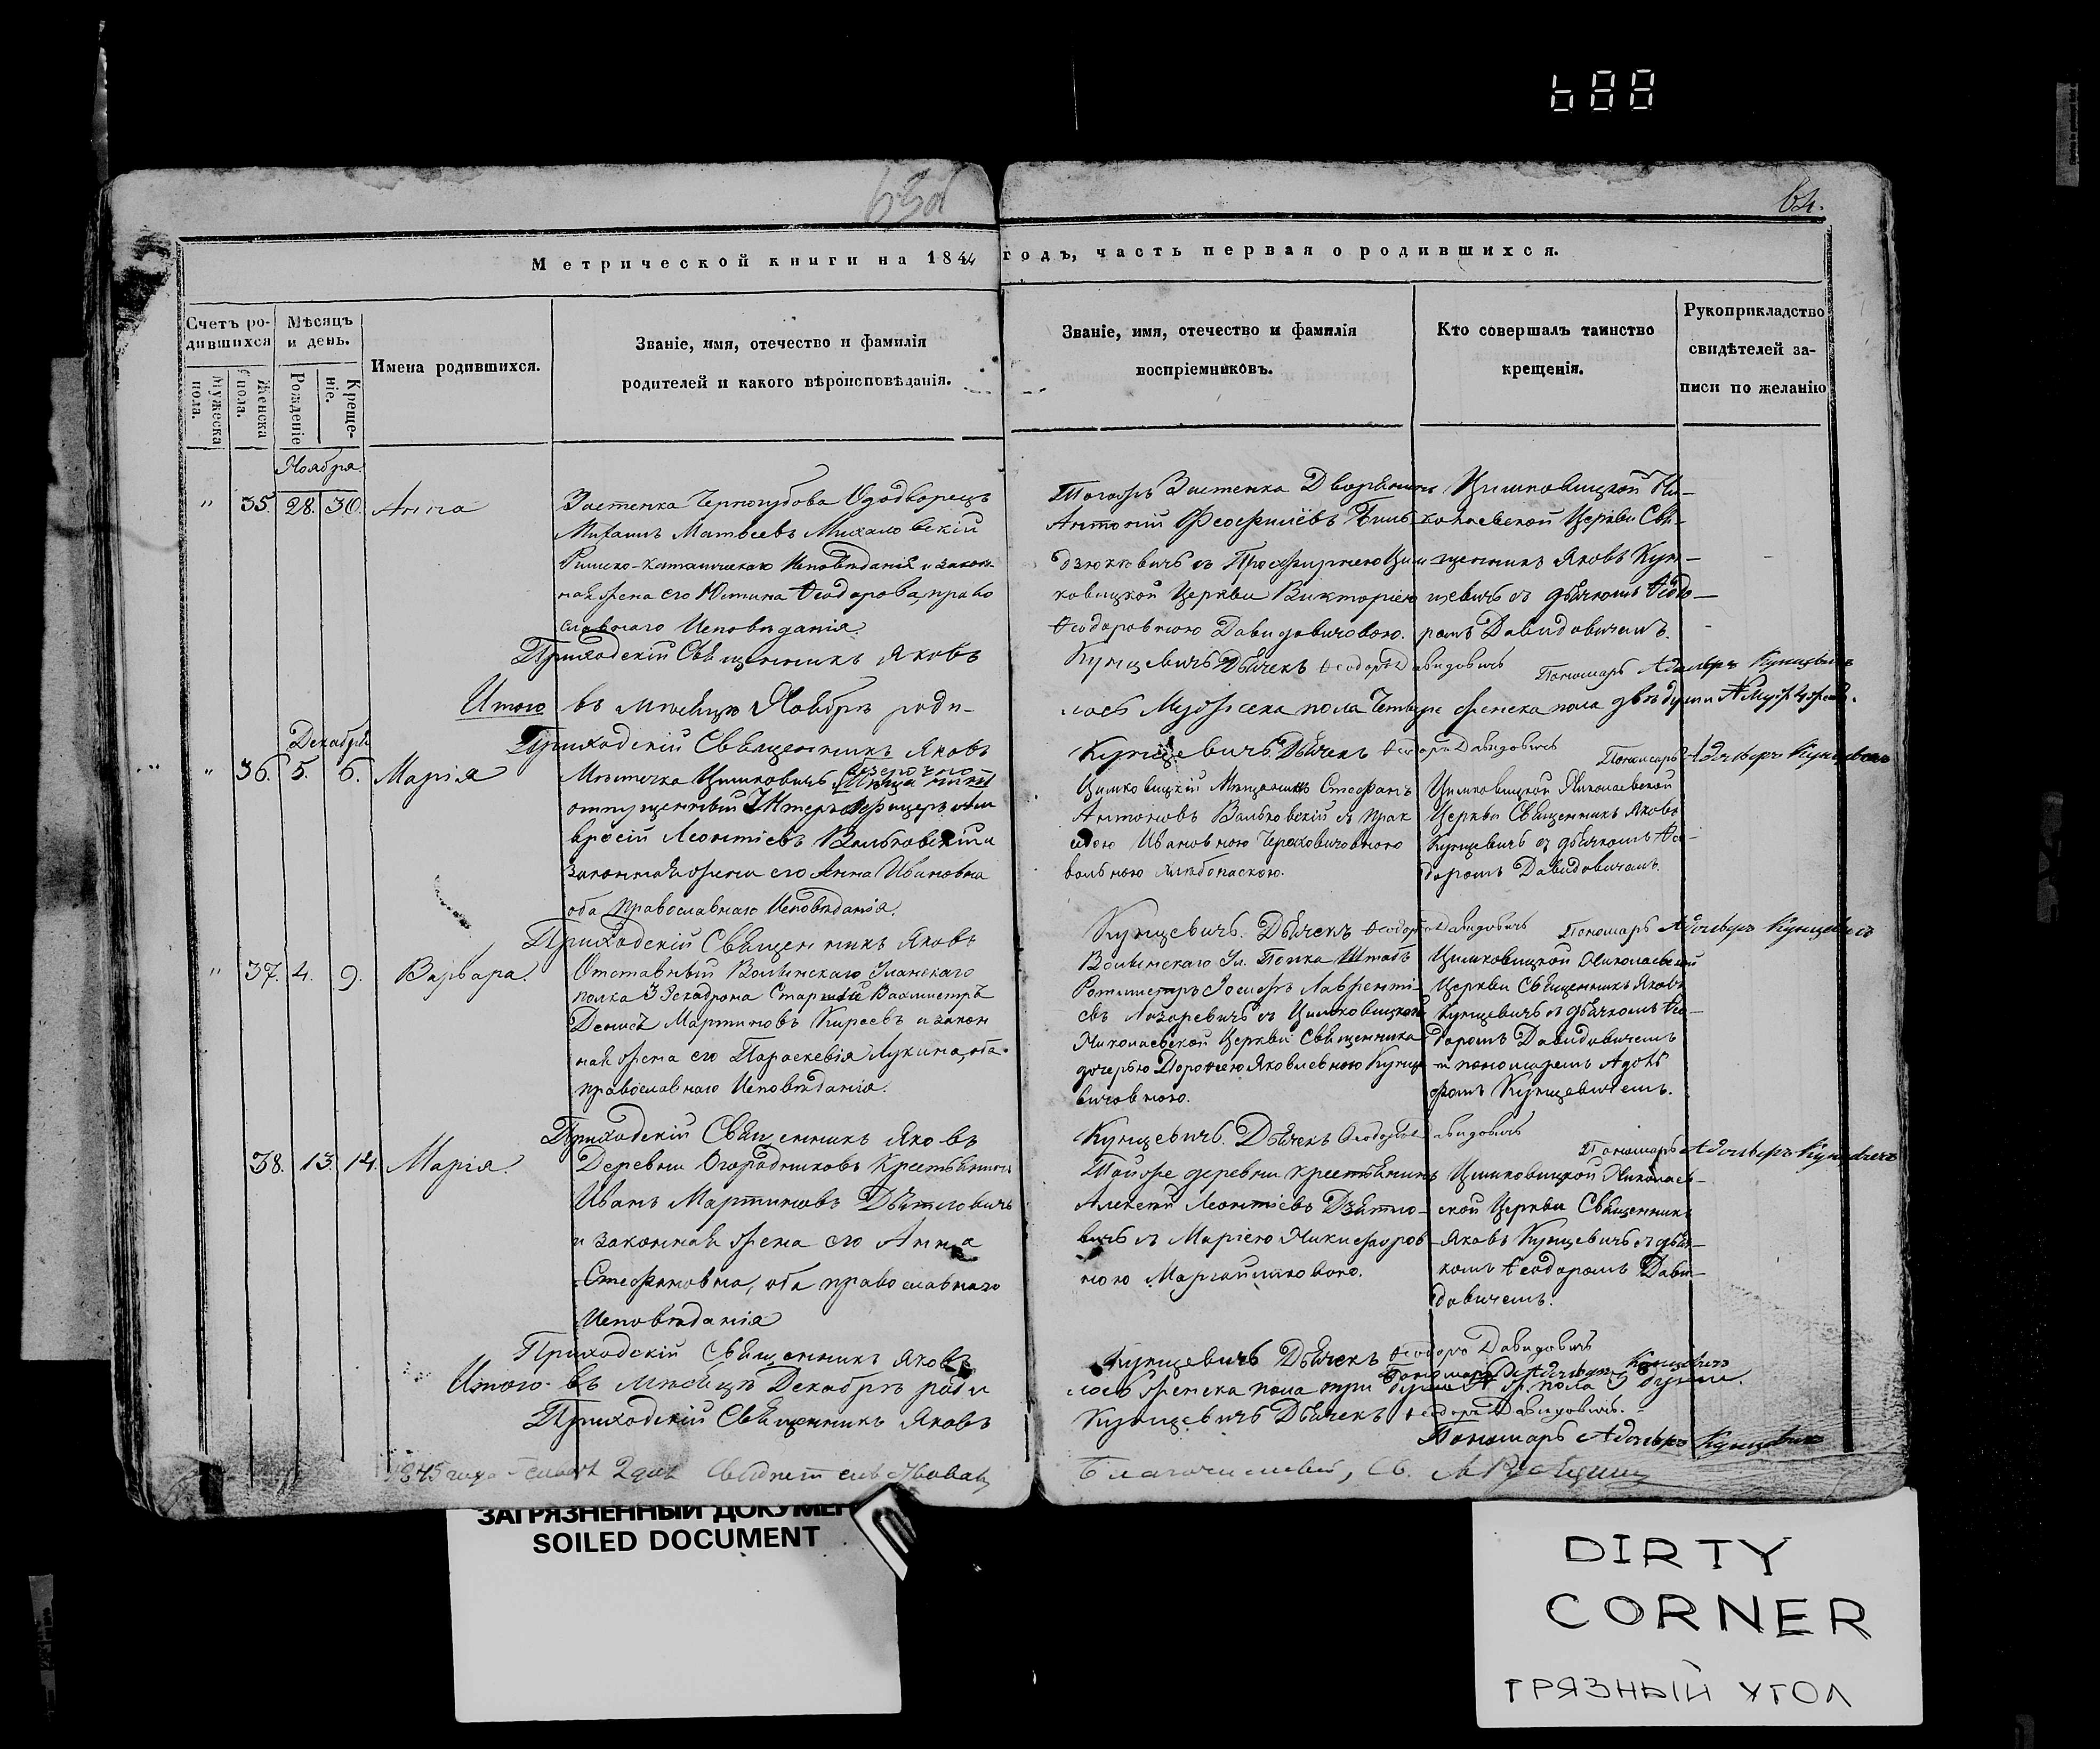 63об
64.
Метрической книги на 1844 годъ, часть первая о родившихся.
Счетъ ро-
дившихся
Мужеска пола.
Женска пола.
Мѣсяцъ
и день.
Рожденіе
Креще-
ніе.
Имена родившихся.
Званіе, имя, отечество и фамилія
родителей и какого вѣроисповѣданія.
Званіе, имя, отечество и фамилія
воспріемниковъ.
Кто совершалъ таинство
крещенія.
Рукоприкладство
свидѣтелей за-
писи по желанію
Ноября
" 35. 28. 30. Анна
Застенка Ододворецъ
Михаилъ Матвеевъ Михаловскій
Римско-католическаго Исповѣданія и закон-
ная жена его Юстина Ѳеодорова, право
славнаго Исповѣданія.
Тогожъ Застенка Дворянинъ
Антоній
ковицкой Церкви Викторіею
Ѳеодоровною Давидовичовою.
Цимковицкой Ни-
колаевской Церкви Свя-
щенникъ Яковъ Кун-
цевичъ съ дьячкомъ Ѳеодо-
ромъ Давидовичемъ.
Приходскій Священникъ Яковъ Кунцевичъ. Дьячекъ Ѳеодоръ Давидовичъ Пономарь Адольфъ Кунцевичъ
Итого въ мѣсяцѣ Ноябрѣ роди-лось Мужеска пола Четыре женска пола двѣ души
Декабря
Приходскій Священникъ Яковъ Кунцевичъ. Дьячекъ Ѳеодоръ Давидовичъ Пономарь Адольфъ Кунцевичъ
" 36. 5. 6. Марія
Мѣстечка Цимковичъ
отпущенный Унтеръ-Офицеръ Ам
вросій Леонтіевъ Вольковскій и
законная жена его Анна Ивановна
оба Православнаго Исповѣданія.
Цимковицкій Мѣщанинъ Стефанъ
Антоновъ Вольковскій съ Прак
седою Ивановною
вольною хлѣбопаскою.
Цимковицкой Николаевской
Церкви Священникъ Яковъ
Кунцевичъ съ дьячкомъ Ѳео-
доромъ Давидовичемъ.
Приходскій Священникъ Яковъ Кунцевичъ. Дьячекъ Ѳеодоръ Давидовичъ Пономарь Адольфъ Кунцевичъ
" 37. 4. 9. Варвара.
Отставный Волынскаго Уланскаго
полка 3 Эскадрона Старшій Вахмистръ
Денисъ Мартиновъ Киреевъ и закон
ная жена его Параскевія Лукина, оба
православнаго Исповѣданія.
Волынскаго Ул. Полка Штабъ
Ротмистръ Іосифъ Лавренті-
евъ Лазаревичъ съ Цимковицкой
Николаевской Церкви Священника
дочерью Дорофеею Яковлевною Кунце
вичовною.
Цимковицкой Николаевской
Церкви Священникъ Яковъ
Кунцевичъ съ дьячкомъ Ѳео-
доромъ Давидовичемъ
и пономаремъ Адоль
фомъ Кунцевичемъ.
Приходскій Священникъ Яковъ Кунцевичъ. Дьячекъ Ѳеодоръ Давидовичъ Пономарь Адольфъ Кунцевичъ
38. 13. 14. Марія.
Деревни Огородниковъ Крестьянинъ
Иванъ Мартиновъ Дзятловичъ
и законная жена его Анна
Стефановна, оба православнаго
Исповѣданія
Тойже деревни крестьянинъ
Алексей Леонтіевъ Дзятло-
вичъ съ Маріею Никифоров-
ною
Цимковицкой Николаев-
ской Церкви Священникъ
Яковъ Кунцевичъ съ дьяч-
комъ Ѳеодоромъ Дави-
довичемъ.
Приходскій Священникъ Яковъ Кунцевичъ Дьячекъ Ѳеодоръ Давидовичъ
Пономарь Адольфъ Кунцевичъ
Итого въ мѣсяцѣ Декабрѣ роди лось женска пола три души
Приходскій Священникъ Яковъ Кунцевичъ Дьячекъ Ѳеодоръ Давидовичъ.
Пономарь Адольфъ Кунцевичъ
1845 года 2 дня Свидѣтельствовалъ Благочинный, Св.
ЗАГРЯЗНЕННЫЙ ДОКУМЕН
SOILED DOCUMENT
DIRTY
CORNER
ГРЯЗНЫЙ УГОЛ